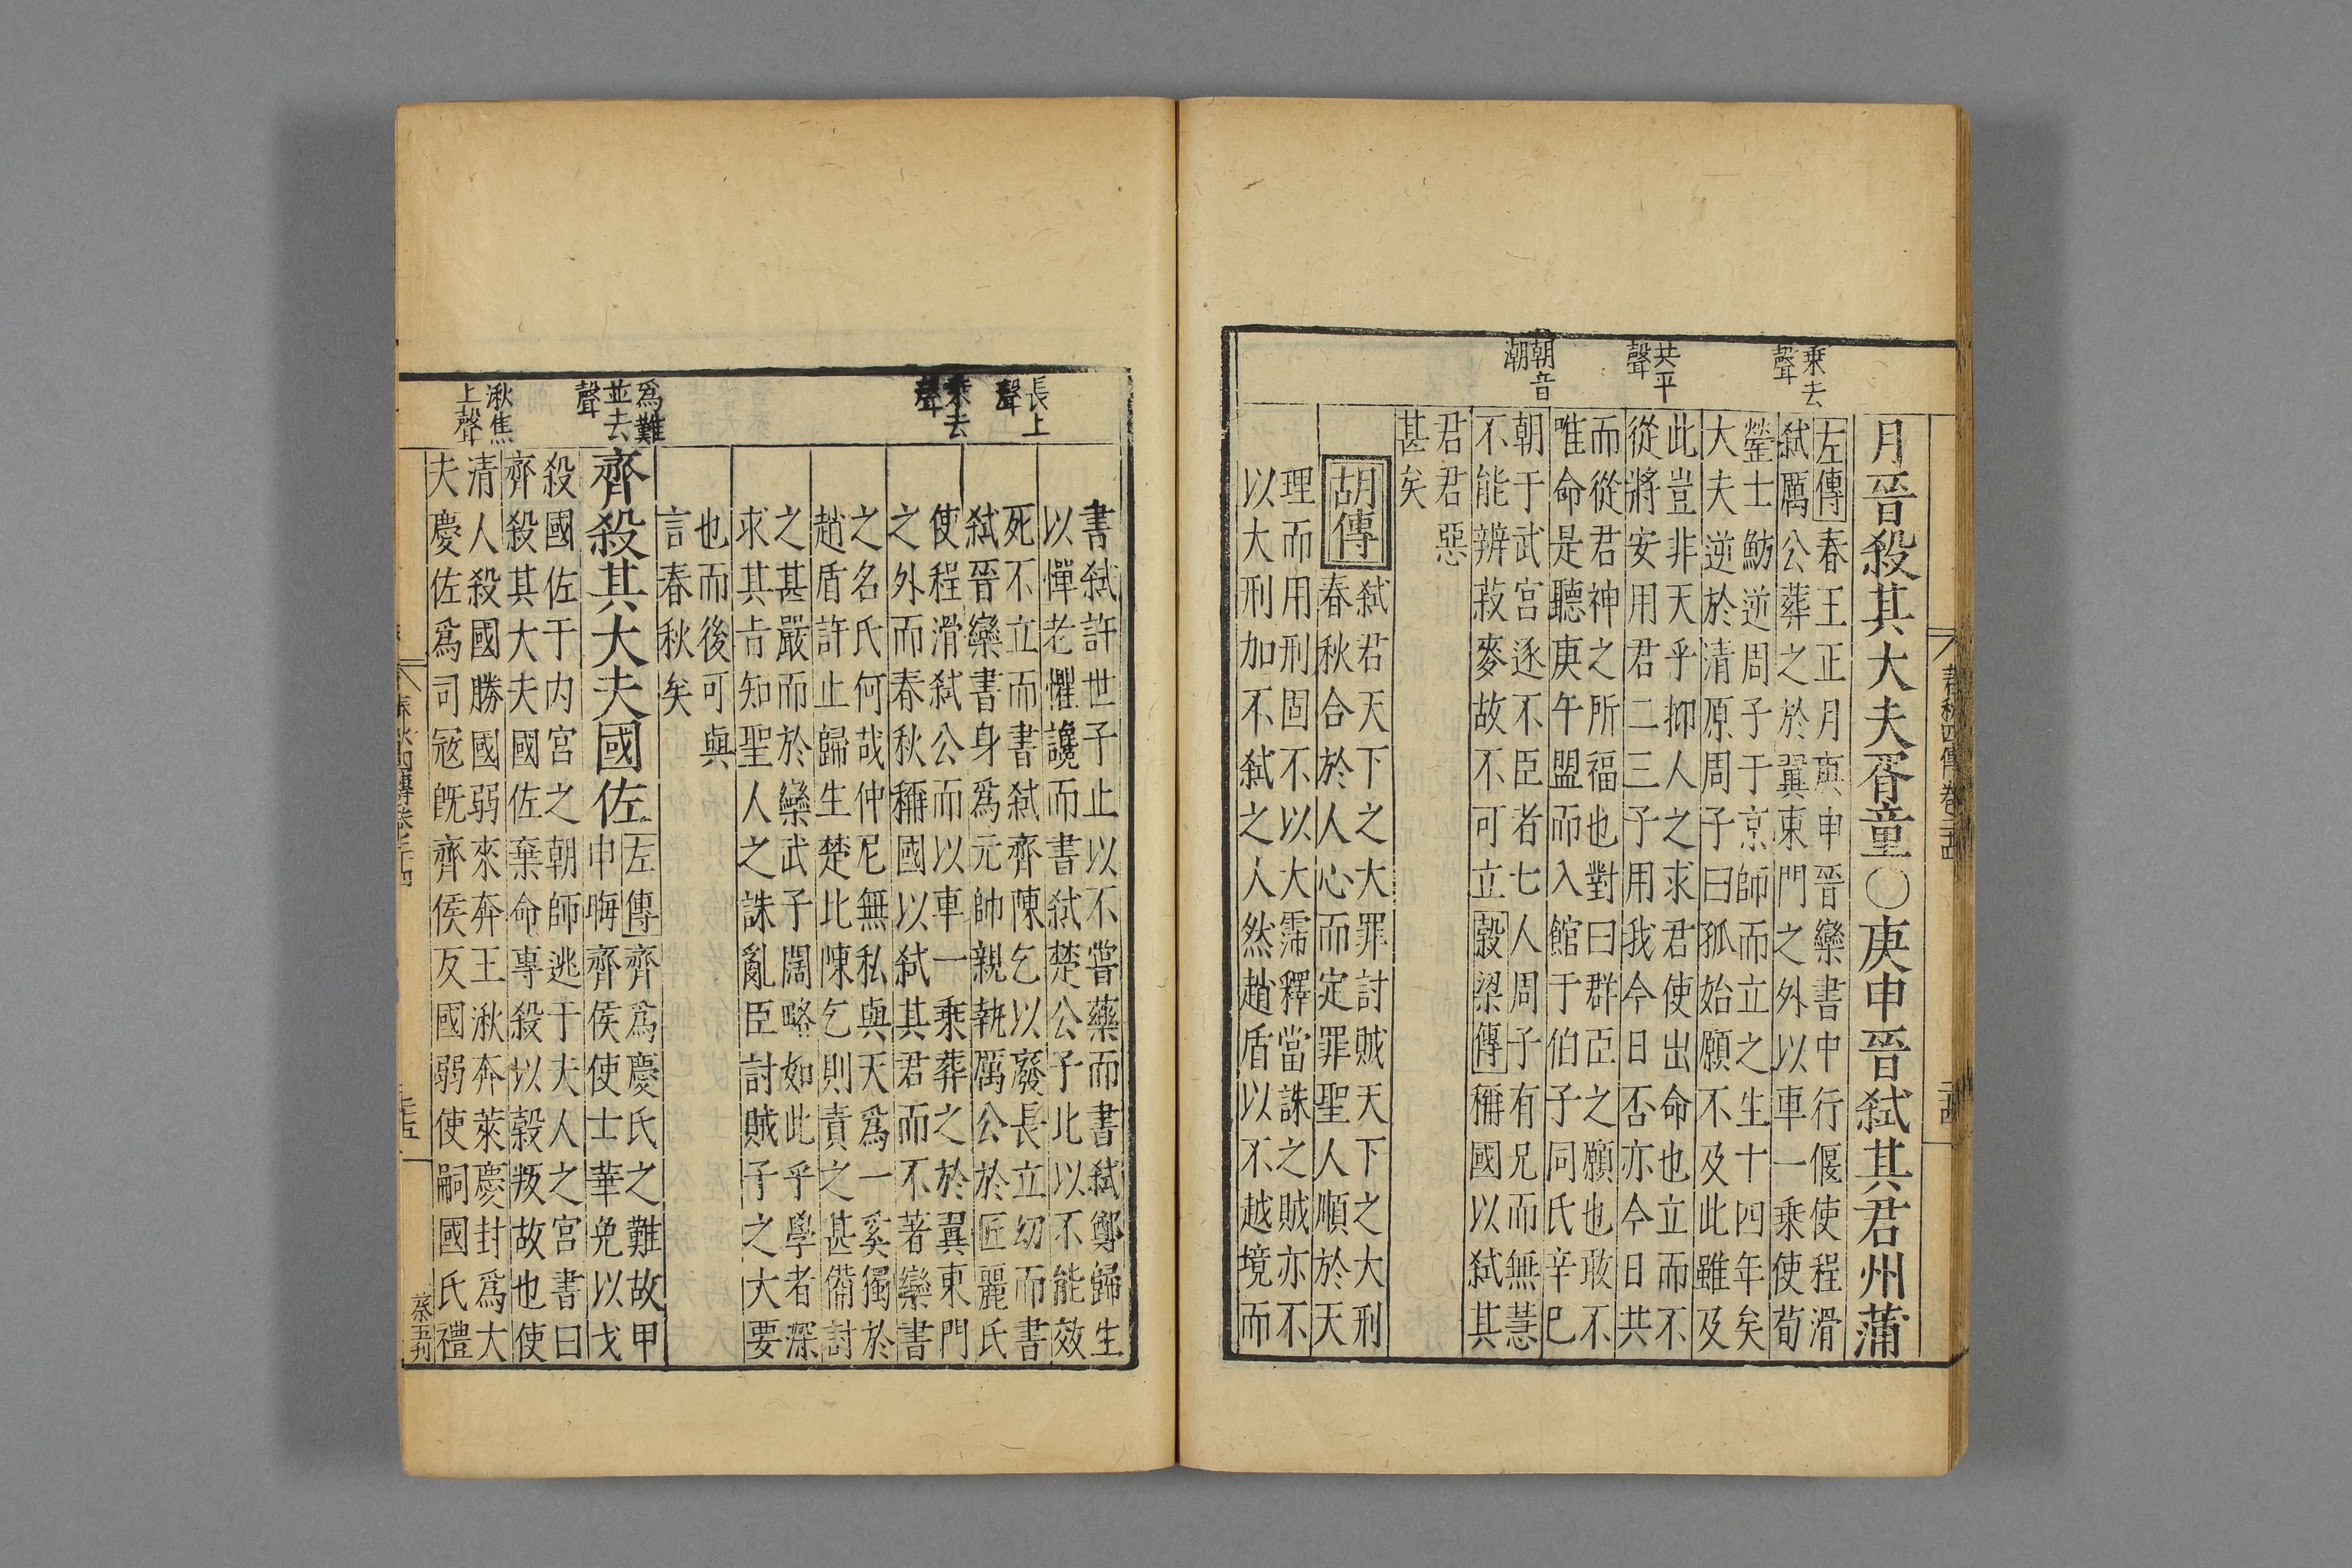 乗去
聲
共平
聲
朝音
潮
月晉殺其大夫胥童〇庚申晉弑其君州蒲
左傳春王正月庚申晉欒書中行偃使程滑
弑厲公葬之於翼東門之外以車一乗使荀
罃士魴逆周子于京師而立之生十四年矣
大夫逆於清原周子曰孤始願不及此雖及
此豈非天乎抑人之求君使出命也立而不
從將安用君二三子用我今日否亦今日共
而從君神之所福也對曰群臣之願也敢不
唯命是聽庚午盟而入館于伯子同氏辛巳
朝于武宮逐不臣者七人周子有兄而無慧
不能辨菽麥故不可立穀梁傳稱國以弑其
君君惡
甚矣
胡傳弑君天下之大罪討賊天下之大刑
春秋合於人心而定罪聖人順於天
理而用刑固不以大霈釋當誅之賊亦不
以大刑加不弑之人然趙盾以不越境而
長上
聲
乗去
聲
爲難
並去
聲
湫焦
上聲
書弑許世子止以不嘗藥而書弑鄭歸生
以憚老懼讒而書弑楚公子比以不能效
死不立而書弑齊陳乞以廢長立幼而書
弑晉欒書身爲元帥親執厲公於匠麗氏
使程滑弑公而以車一乗葬之於翼東門
之外而春秋稱國以弑其君而不著欒書
之名氏何哉仲尼無私與天爲一奚獨於
趙盾許止歸生楚比陳乞則責之甚備討
之甚嚴而於欒武子闊略如此乎學者深
求其旨知聖人之誅亂臣討賊子之大要
也而後可與
言春秋矣
齊殺其大夫國佐左傳齊爲慶氏之難故甲
申晦齊侯使士華免以戈
殺國佐于内宮之朝師逃于夫人之宮書曰
齊殺其大夫國佐棄命專殺以穀叛故也使
清人殺國勝國弱來奔王湫奔萊慶封爲大
夫慶佐爲司寇既齊侯反國弱使嗣國氏禮
春秋四傳卷二十四